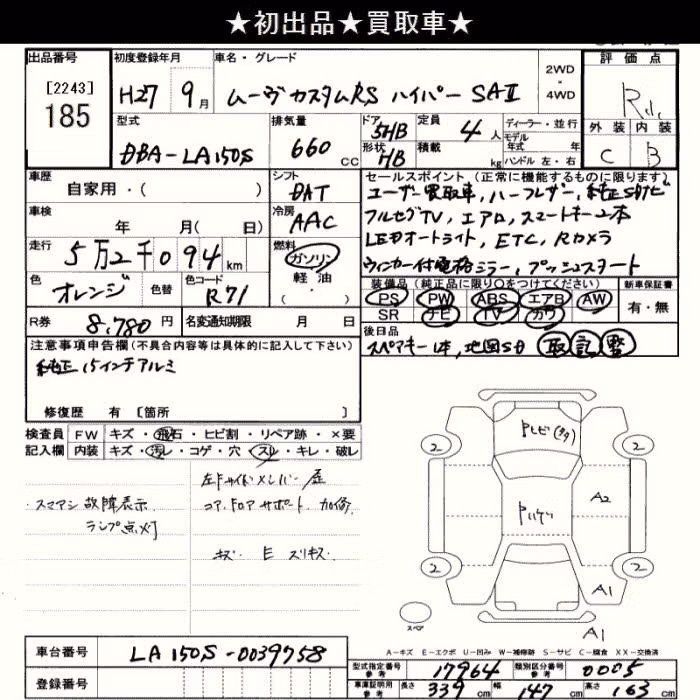 ★初出品★買取車★
出品番号 初度登録年月 車名・グレード 2WD・4WD 評価点
[2243]
185
H27 9月 ムーヴ カスタムRS ハイパー SAⅡ
型式 排気量 ドア 5HB 定員 4人 ディーラー・並行
モデル年式 年
形状 HB 積載 kg ハンドル 左・右
DBA-LA150S 660 CC
外装 内装
C B
車歴 シフト セールスポイント (正常に機能するものに限ります)
自家用・( ) DAT
ユーザー買取車, ハーフレザー, 純正SDナビ
車検 冷房
年 月( 日) AAC
フルセグTV, エアロ, スマートキー2本
LEDオートライト, ETC, Rカメラ
走行 燃料
5万2千094km ガソリン
軽油
( )
ウィンカー付電格ミラー, プッシュスタート
色 オレンジ 色替 色コード R71
装備品 (純正品に限り○をつけてください) 新車保証書
PS PW ABS エアB AW 有・無
SR ナビ TV カワ
R券 8,780円 名変通知期限 月 日
後日品
スペアキー1本, 地図SD 取 記 整
注意事項申告欄(不具合内容等は具体的に記入して下さい)
純正15インチアルミ
修復歴 有 [箇所 ]
検査員 FW キズ・飛石・ヒビ割・リペア跡・×要
記入欄 内装 キズ・汚レ・コゲ・穴・スレ・キレ・破レ
スマアシ故障表示
ランプ点灯
左Fサイドメンバー歪
コア, Fロアサポート 加修
キズ E スリキズ
2 2
A2
2 2
A1
スペア
A1
A-キズ E-エクボ U-凹み W-補修跡 S-サビ C-腐食 XX-交換済
車台番号 LA150S-0039758
登録番号
型式指定番号 参考 17964 類別区分番号 参考 0005
車庫証明用 参考 長さ 339cm 幅 147cm 高さ 63cm